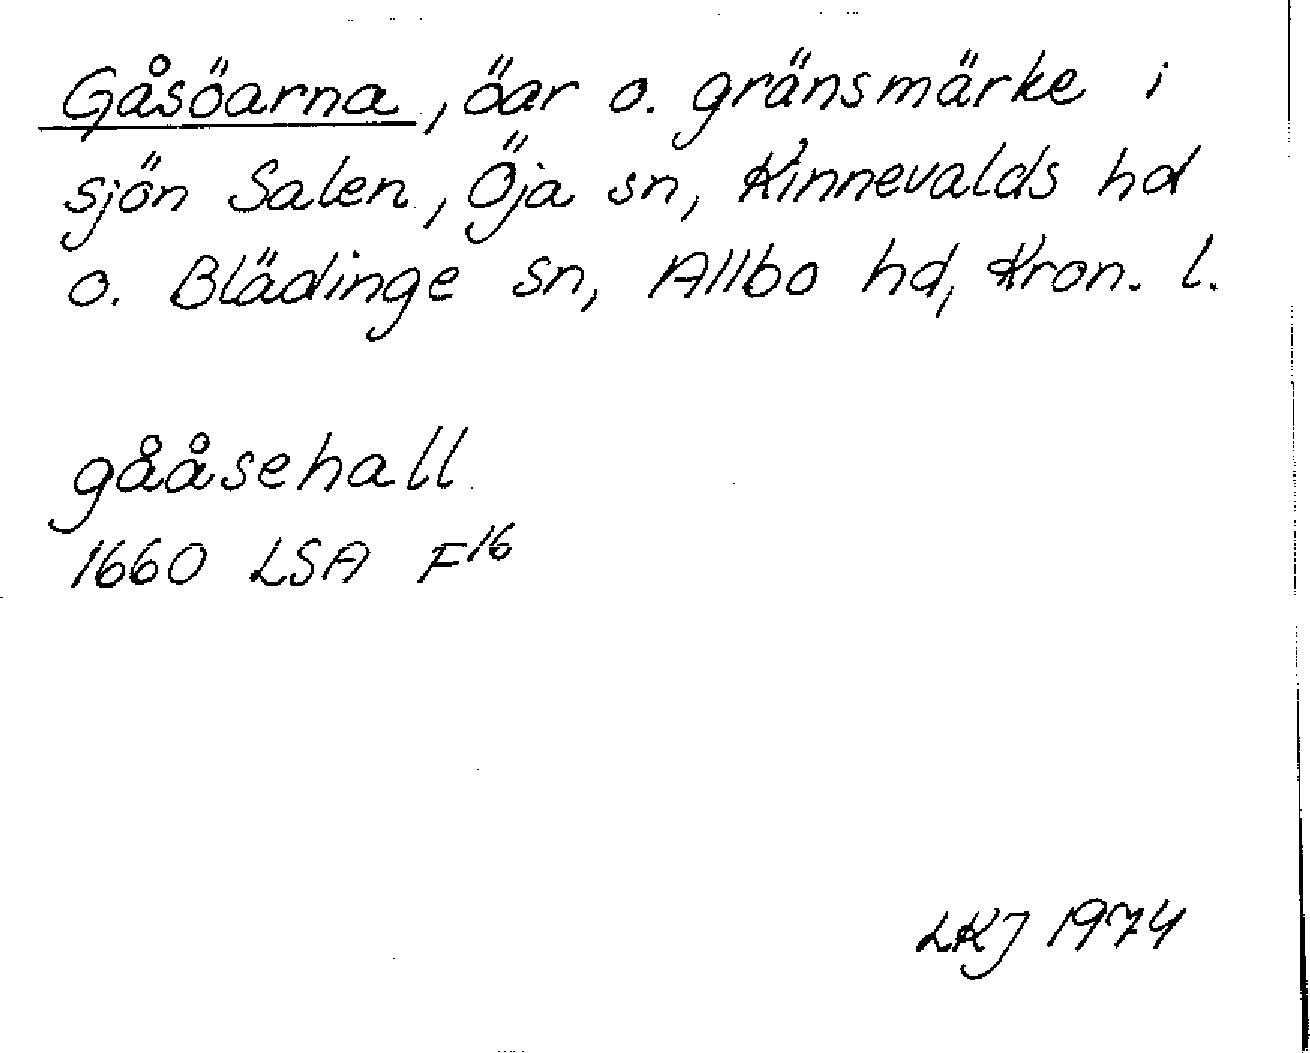 Gåsöarna, öar o. gränsmärke i
sjön Salen, Öja sn, Kinnevalds hd
o. Blädinge sn, Allbo hd, Kron. l.
gååsehall
1660 LSA F16
LKJ 1974